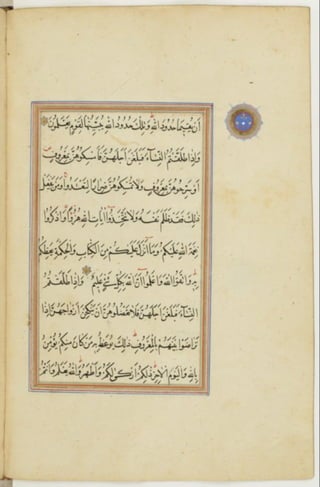 أَنْ يُقِيمَا حُدُودَ اللهِ وَتِلْكَ حُدُودُ اللهِ يُبَيِّنُهَا لِقَوْمٍ يَعْلَمُونَ
وَإِذَا طَلَّقْتُمُ النِّسَآءَ فَبَلَغْنَ أَجَلَهُنَّ فَأَمْسِكُوهُنَّ بِمَعْرُوفٍ
أَوْ سَرِّحُوهُنَّ بِمَعْرُوفٍ وَلَا تُمْسِكُوهُنَّ ضِرَارًا لِتَعْتَدُوا وَمَنْ يَفْعَلْ
ذَلِكَ فَقَدْ ظَلَمَ نَفْسَهُ وَلَا تَتَّخِذُوا آيَاتِ اللهِ هُزُوًا وَاذْكُرُوا
نِعْمَةَ اللهِ عَلَيْكُمْ وَمَا أَنْزَلَ عَلَيْكُمْ مِنَ الْكِتَابِ وَالْحِكْمَةِ يَعِظُكُمْ
بِهِ وَاتَّقُوا اللهَ وَاعْلَمُوا أَنَّ اللهَ بِكُلِّ شَيْءٍ عَلِيمٌ وَإِذَا طَلَّقْتُمُ
النِّسَآءَ فَبَلَغْنَ أَجَلَهُنَّ فَلَا تَعْضُلُوهُنَّ أَنْ يَنْكِحْنَ أَزْوَاجَهُنَّ إِذَا
تَرَاضَوْا بَيْنَهُمْ بِالْمَعْرُوفِ ذَلِكَ يُوعَظُ بِهِ مَنْ كَانَ مِنْكُمْ يُؤْمِنُ
بِاللهِ وَالْيَوْمِ الْآخِرِ ذَلِكُمْ أَزْكَى لَكُمْ وَأَطْهَرُ وَاللهُ يَعْلَمُ وَأَنْتُمْ